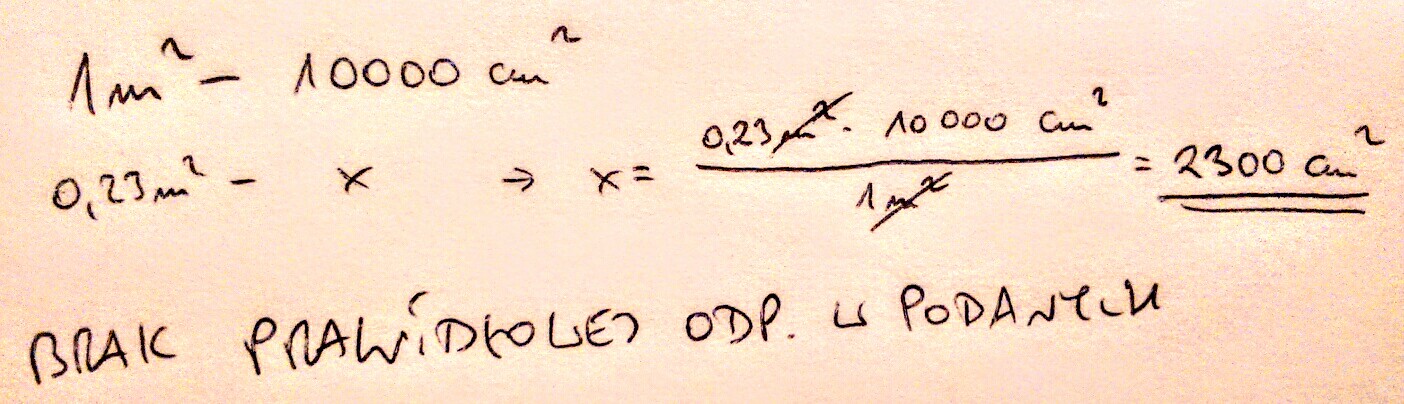 1m² - 10000 cm²
0,23m² - x → x = (0,23m² · 10000 cm²) / 1m² = 2300 cm²
BRAK PRAWIDŁOWEJ ODP. W PODANYCH